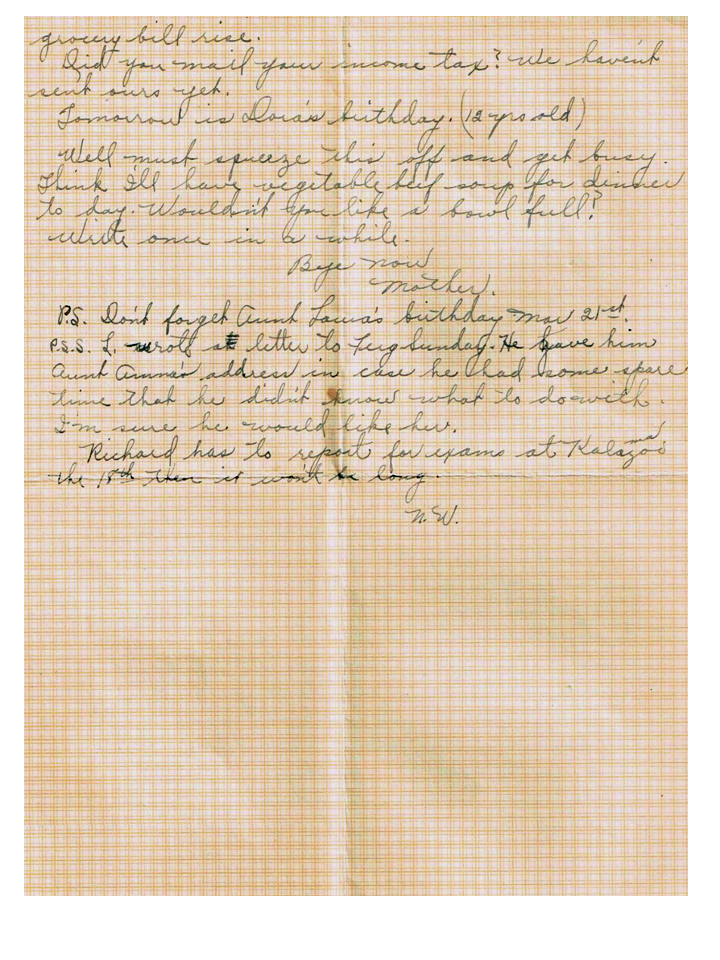 grocery bill rise.
Did you mail your income tax? We haven't
sent ours yet.
Tomorrow is Dora's birthday. (12 yrs old)
Well must squeeze this off and get busy.
Think I'll have vegetable beef soup for dinner
to day. Wouldn't you like a bowl full?
Write once in a while.
Bye now
Mother.
P.S. Don't forget Aunt Laura's birthday Mar 21st.
P.S.S. L. wrote a letter to Sunday. He gave him
Aunt address in case he had some spare
time that he didn't know what to do with.
I'm sure he would like her.
Richard has to report for exams at Kalazoo
ma
the 18th then it won't be long.
N.W.